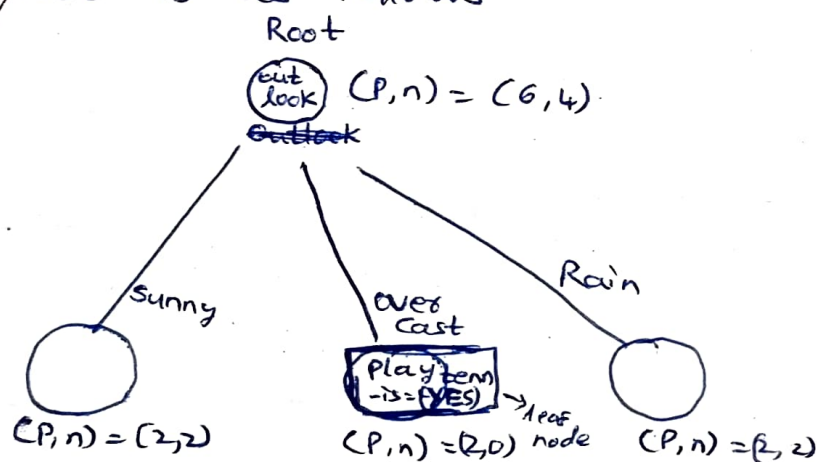 Root
out
look
(P,n) = (6,4).
Outlook
Sunny
over
cast
Rain
Play tenn
-is=(YES)
→ leaf
node
(P,n) = (2,2)
(P,n) = (2,0)
(P,n) = (2,2)